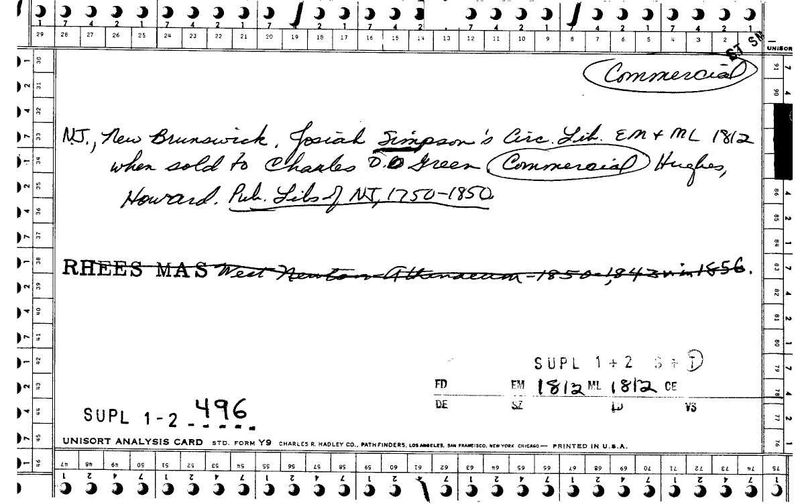 29 28 27 26 25 24 23 22 21 20 19 18 17 16 15 14 13 12 11 10 9 8 7 6 5 4 3 2 1
UNISOR
ST SM
Commercial
N.J., New Brunswick, Josiah Simpson's Circ. Lib. EM + ML 1812
when sold to Charles D. Green Commercial Hughes,
Howard. Pub. Libs of NJ, 1750-1850.
RHEES MAS West Newton Athenaeum - 1850 - 1,843 v. in 1856.
SUPL 1+2 S+T
FD EM 1812 ML 1812 CE
DE SZ LJ VS
SUPL 1-2 496
UNISORT ANALYSIS CARD STD. FORM Y9 CHARLES R. HADLEY CO., PATHFINDERS, LOS ANGELES, SAN FRANCISCO, NEW YORK CHICAGO — PRINTED IN U.S.A.